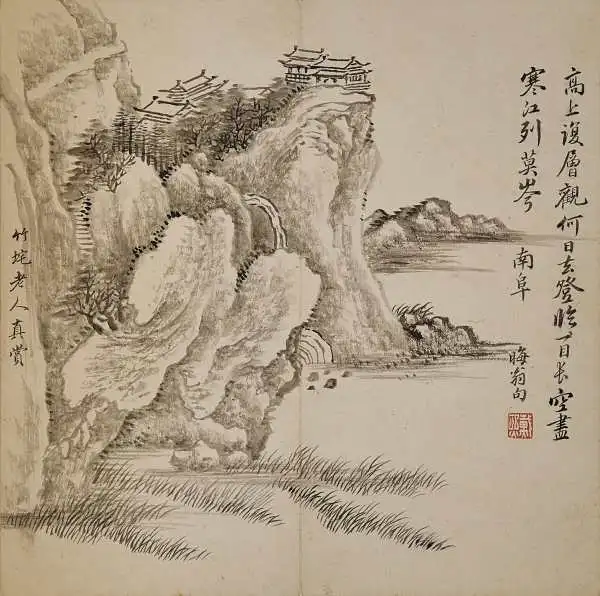 高上復層觀何日去登臨一目長空盡
寒江列莫岑
南阜
晦翁句
竹垞老人真賞